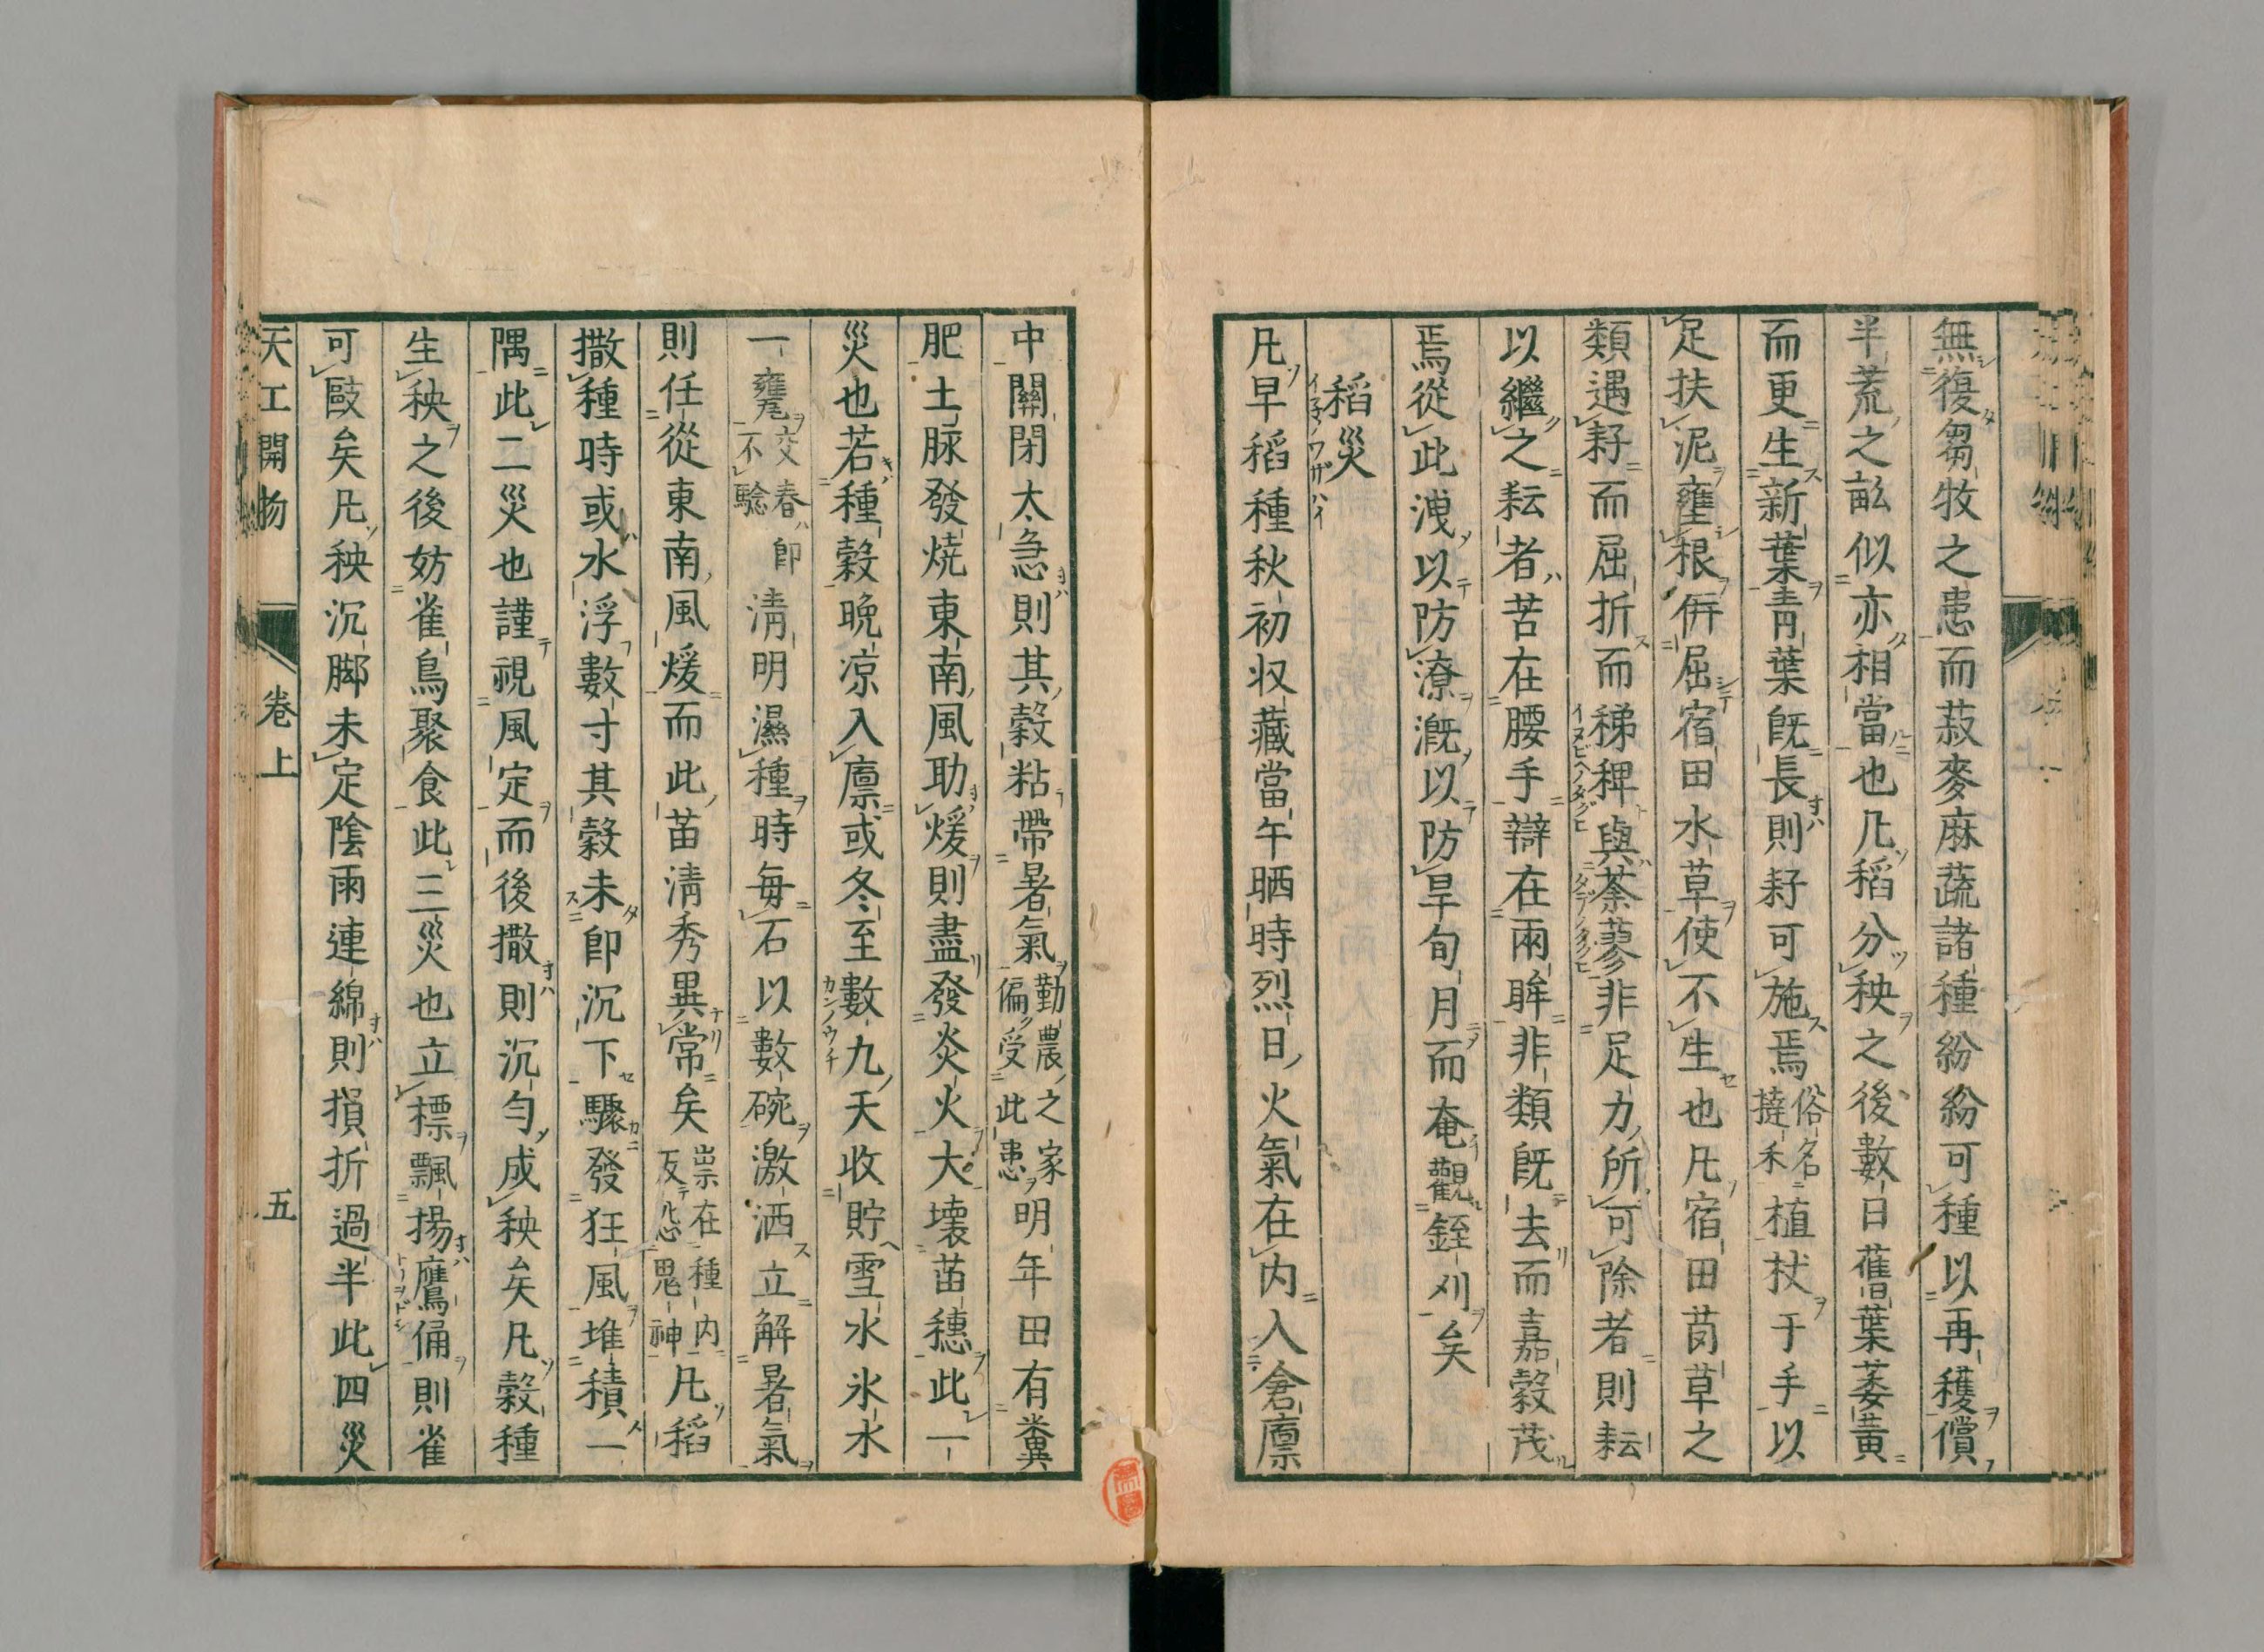 無復芻牧之患而菽麥麻蔬諸種紛紛可種以再穫償
半荒之畝似亦相當也凡稻分秧之後數日舊葉萎黃
而更生新葉青葉既長則耔可施焉俗名撻禾植杖于手以
足扶泥壅根併屈宿田水草使不生也凡宿田茵草之
類遇耔而屈折而稊稗與荼蓼非足力所可除者則耘
以繼之耘者苦在腰手辯在兩眸非類既去而嘉穀茂
焉從此洩以防潦漑以防旱旬月而奄觀銍刈矣
稻災
イ子ノワザハイ
凡早稻種秋初收藏當午晒時烈日火氣在内入倉廩
中關閉太急則其穀粘帶暑氣勤農之家偏受此患明年田有糞
肥土脉發燒東南風助煖則盡發炎火大壞苗穗此一
災也若種穀晩凉入廩或冬至數九天收貯雪水氷水
一甕交春即不驗清明濕種時每石以數碗激洒立解暑氣
則任從東南風煖而此苗清秀異常矣祟在種内反怨鬼神凡稻
撒種時或水浮數寸其穀未即沉下驟發狂風堆積一
隅此二災也謹視風定而後撒則沉勻成秧矣凡穀種
生秧之後妨雀鳥聚食此三災也立標飄揚鷹俑則雀
可毆矣凡秧沉脚未定陰雨連綿則損折過半此四災
天工開物 卷上 五